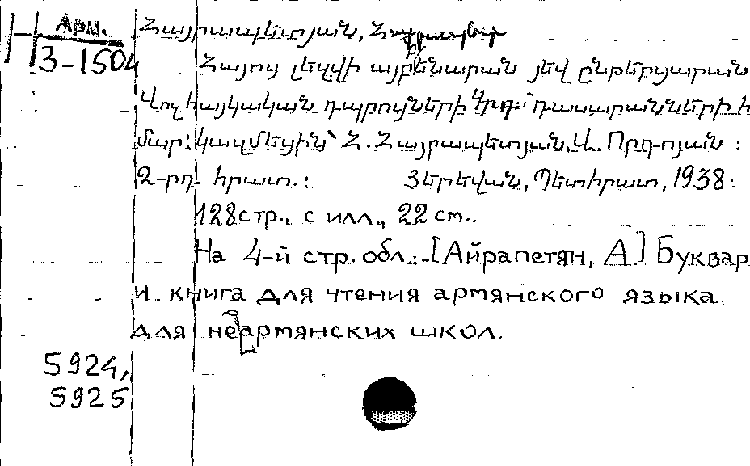 Арм.
3-1504
Հայրապետյան, Հ.
Հայոց լեզվի այբենարան յեվ ընթերցարան
Վոչ հայկական դպրոցների դասարանների հ
մար: Կազմեցին՝ Հ. Հայրապետյան, Ա.
2-րդ հրատ.: Յերեվան, Պետհրատ, 1938:
128 стр., с илл., 22 см.
На 4-й стр. обл.: [Айрапетян, А.] Буквар
и книга для чтения армянского языка
для неармянских школ.
5924,
5925